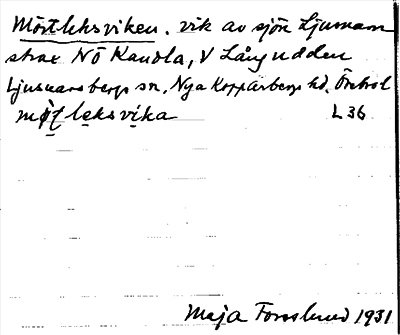 Mörtleksviken. vik av sjön Ljusnaren
strax NÖ Kandla, V Långudden
Ljusnarsbergs sn, Nya Kopparbergs hd. Örebro l
L 36
Maja Forslund 1931